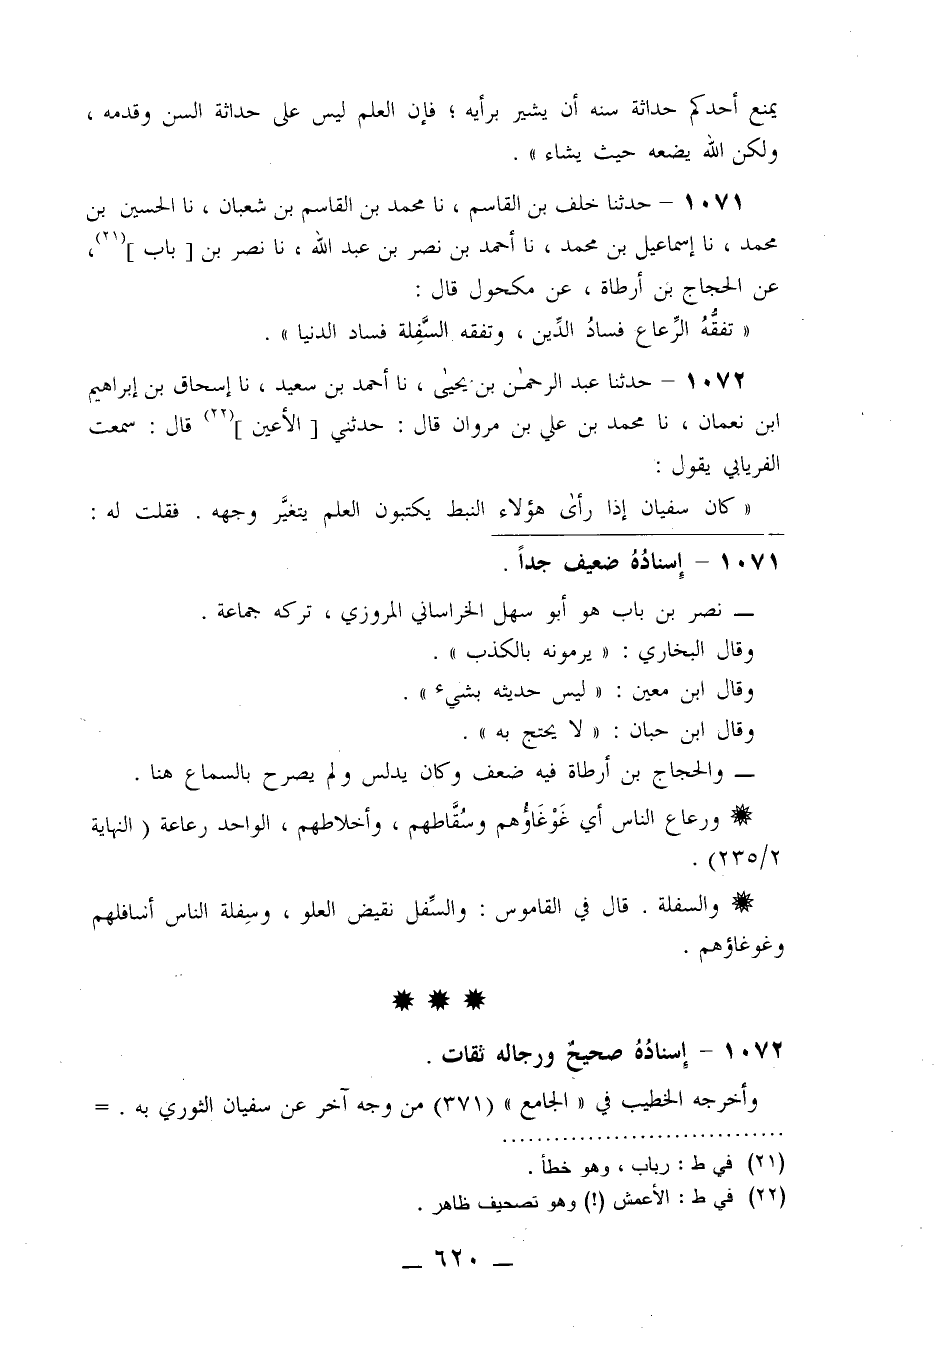 يمنع أحدكم حداثة سنه أن يشير برأيه ؛ فإن العلم ليس على حداثة السن وقدمه ،
ولكن الله يضعه حيث يشاء » .
١٠٧١ – حدثنا خلف بن القاسم ، نا محمد بن القاسم بن شعبان ، نا الحسين بن
محمد ، نا إسماعيل بن محمد ، نا أحمد بن نصر بن عبد الله ، نا نصر بن [ باب ](٢١)،
عن الحجاج بن أرطاة ، عن مكحول قال :
« تفقُّهُ الرِّعاع فسادُ الدِّين ، وتفقه السَّفِلة فساد الدنيا » .
١٠٧٢ – حدثنا عبد الرحمٰن بن يحيىٰ ، نا أحمد بن سعيد ، نا إسحاق بن إبراهيم
ابن نعمان ، نا محمد بن علي بن مروان قال : حدثني [ الأعين ](٢٢) قال : سمعت
الفريابي يقول :
« كان سفيان إذا رأىٰ هؤلاء النبط يكتبون العلم يتغيَّر وجهه . فقلت له :
١٠٧١ – إِسنادُهُ ضعيف جداً .
ــ نصر بن باب هو أبو سهل الخراساني المروزي ، تركه جماعة .
وقال البخاري : « يرمونه بالكذب » .
وقال ابن معين : « ليس حديثه بشيء » .
وقال ابن حبان : « لا يحتج به » .
ــ والحجاج بن أرطاة فيه ضعف وكان يدلس ولم يصرح بالسماع هنا .
✹ ورعاع الناس أي غَوْغَاؤُهم وسُقَّاطهم ، وأخلاطهم ، الواحد رعاعة ( النهاية
٢/٢٣٥) .
✹ والسفلة . قال في القاموس : والسِّفل نقيض العلو ، وسِفلة الناس أسافلهم
وغوغاؤهم .
✹ ✹ ✹
١٠٧٢ – إِسنادُهُ صحيحٌ ورجاله ثقات .
وأخرجه الخطيب في « الجامع » (٣٧١) من وجه آخر عن سفيان الثوري به . =
(٢١) في ط : رباب ، وهو خطأ .
(٢٢) في ط : الأعمش (!) وهو تصحيف ظاهر .
ــ ٦٢٠ ــ